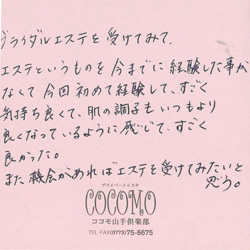 ブライダルエステを受けてみて、
エステというものを今までに経験した事が
なくて今回初めて経験して、すごく
気持ち良くて、肌の調子もいつもより
良くなっているように感じて、すごく
良かった。
また機会があればエステを受けてみたいと
思う。
プライベートエステ
COCOMO
ココモ山手倶楽部
TEL FAX(0773)75-6675